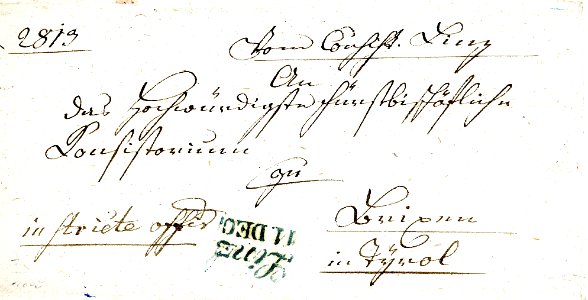 2813
Vom Consist. Linz
An
das Hochwürdigste Fürstbischöfliche
Konsistorium
zu
Brixen
in Tÿrol
in stricte offiò
Linz
11. DEC.